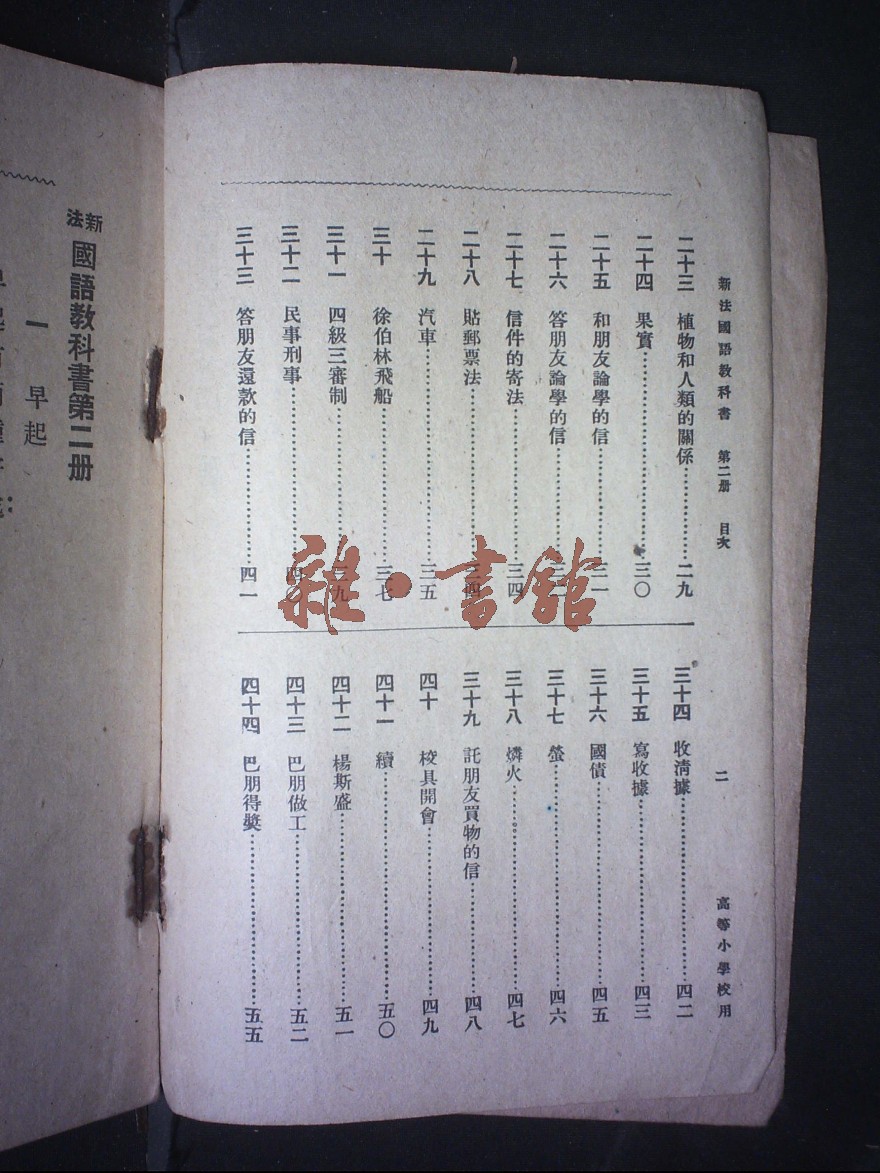 新法國語教科書 第二册 目次 二 高等小學校用
二十三 植物和人類的關係…………二九
二十四 果實…………三〇
二十五 和朋友論學的信…………三一
二十六 答朋友論學的信…………
二十七 信件的寄法…………三四
二十八 貼郵票法…………三四
二十九 汽車…………三五
三十 徐伯林飛船…………三七
三十一 四級三審制…………三九
三十二 民事刑事…………
三十三 答朋友還款的信…………四一
三十四 收清據…………四二
三十五 寫收據…………四三
三十六 國債…………四五
三十七 螢…………四六
三十八 燐火…………四七
三十九 託朋友買物的信…………四八
四十 校具開會…………四九
四十一 續…………五〇
四十二 楊斯盛…………五一
四十三 巴朋做工…………五二
四十四 巴朋得獎…………五五
新法 國語教科書第二册
一 早起
雜·書館